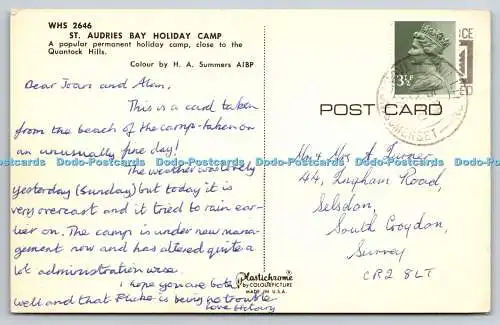 WHS 2646
ST. AUDRIES BAY HOLIDAY CAMP
A popular permanent holiday camp, close to the
Quantock Hills.
Colour by H. A. Summers AIBP
Dear Joan and Alan,
This is a card taken
from the beach of the camp - taken on
an unusually fine day!
The weather was lovely
yesterday (Sunday) but today it is
very overcast and it tried to rain ear-
lier on. The camp is under new mana-
gement now and has altered quite a
lot administration wise.
I hope you are both
well and that Fluke is being no trouble
Love Hilary
Plastichrome
BY COLOURPICTURE
MADE IN U.S.A.
3½P
SOMERSET
POST CARD
Mr & Mrs A Turner,
44, Ingham Road,
Selsdon,
South Croydon,
Surrey
CR2 8LT
Dodo-Postcards Dodo-Postcards Dodo-Postcards Dodo-Postcards Dodo-Postcards Dodo-Postcards